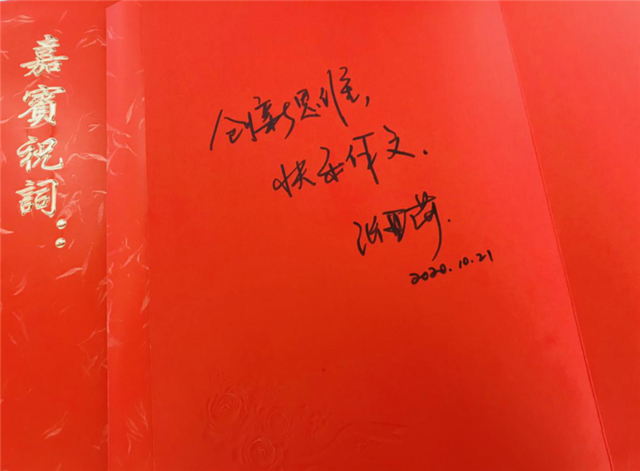 嘉賓祝詞:
创新思维,
快乐作文.
2020.10.21